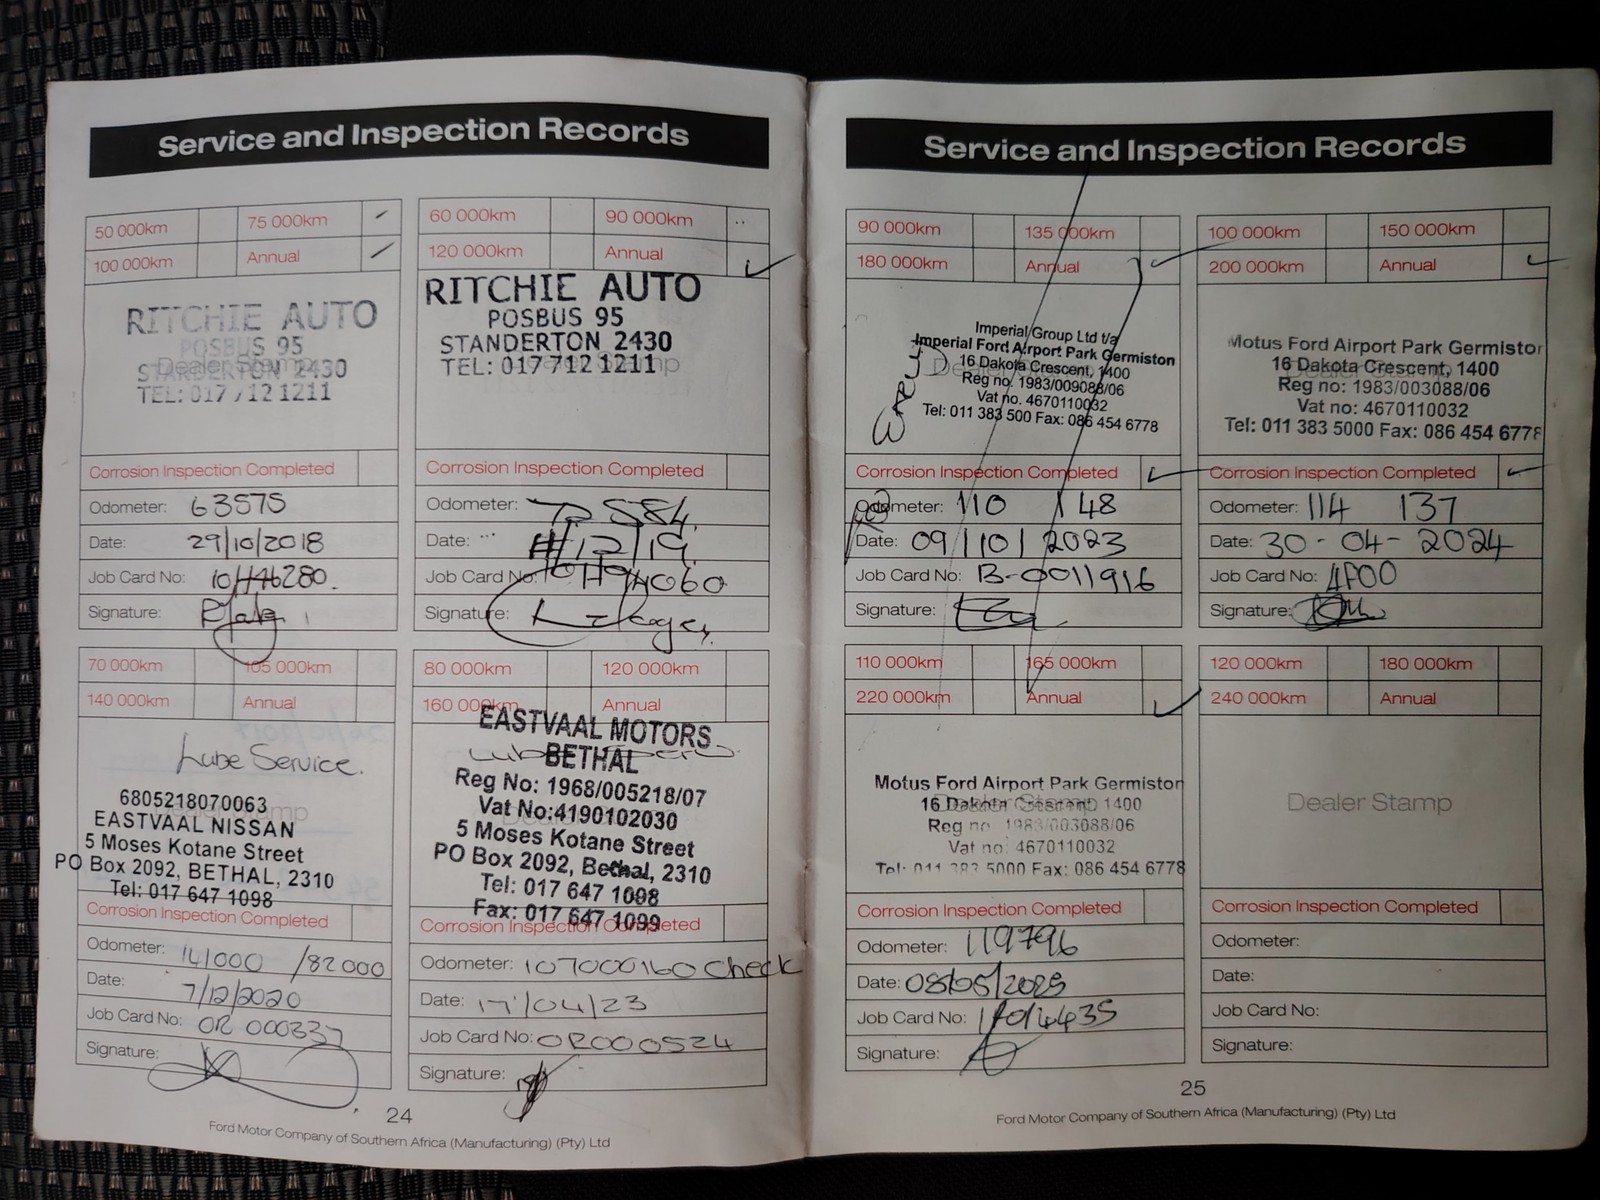 Service and Inspection Records
50 000km 75 000km
100 000km Annual
RITCHIE AUTO
POSBUS 95
STANDERTON 2430
Dealer Stamp
TEL: 017 712 1211
Corrosion Inspection Completed
Odometer: 63575
Date: 29/10/2018
Job Card No:
Signature:
60 000km 90 000km
120 000km Annual
RITCHIE AUTO
POSBUS 95
STANDERTON 2430
TEL: 017 712 1211
Corrosion Inspection Completed
Odometer:
Date:
Job Card No:
Signature:
70 000km 105 000km
140 000km Annual
Lube Service.
6805218070063
EASTVAAL NISSAN
5 Moses Kotane Street
PO Box 2092, BETHAL, 2310
Tel: 017 647 1098
Corrosion Inspection Completed
Odometer: 141000 /82000
Date: 7/12/2020
Job Card No: OR 000337
Signature:
80 000km 120 000km
160 000km Annual
EASTVAAL MOTORS
BETHAL
Reg No: 1968/005218/07
Vat No:4190102030
5 Moses Kotane Street
PO Box 2092, Bethal, 2310
Tel: 017 647 1098
Fax: 017 647 1099
Corrosion Inspection Completed
Odometer: 107000160 Check
Date: 17/04/23
Job Card No: OR000524
Signature:
24
Ford Motor Company of Southern Africa (Manufacturing) (Pty) Ltd
Service and Inspection Records
90 000km 135 000km
180 000km Annual
Imperial Group Ltd t/a
Imperial Ford Airport Park Germiston
16 Dakota Crescent, 1400
Reg no. 1983/009088/06
Vat no. 4670110032
Tel: 011 383 500 Fax: 086 454 6778
Corrosion Inspection Completed
Odometer: 110 148
Date: 09/10/2023
Job Card No: B-0011916
Signature:
100 000km 150 000km
200 000km Annual
Motus Ford Airport Park Germiston
16 Dakota Crescent, 1400
Reg no: 1983/003088/06
Vat no: 4670110032
Tel: 011 383 5000 Fax: 086 454 6778
Corrosion Inspection Completed
Odometer: 114 137
Date: 30-04-2024
Job Card No:
Signature:
110 000km 165 000km
220 000km Annual
Motus Ford Airport Park Germiston
16 Dakota Crescent 1400
Reg no 1983/003088/06
Vat no: 4670110032
Tel: 011 383 5000 Fax: 086 454 6778
Corrosion Inspection Completed
Odometer: 119796
Date: 08/05/2025
Job Card No:
Signature:
120 000km 180 000km
240 000km Annual
Dealer Stamp
Corrosion Inspection Completed
Odometer:
Date:
Job Card No:
Signature:
25
Ford Motor Company of Southern Africa (Manufacturing) (Pty) Ltd